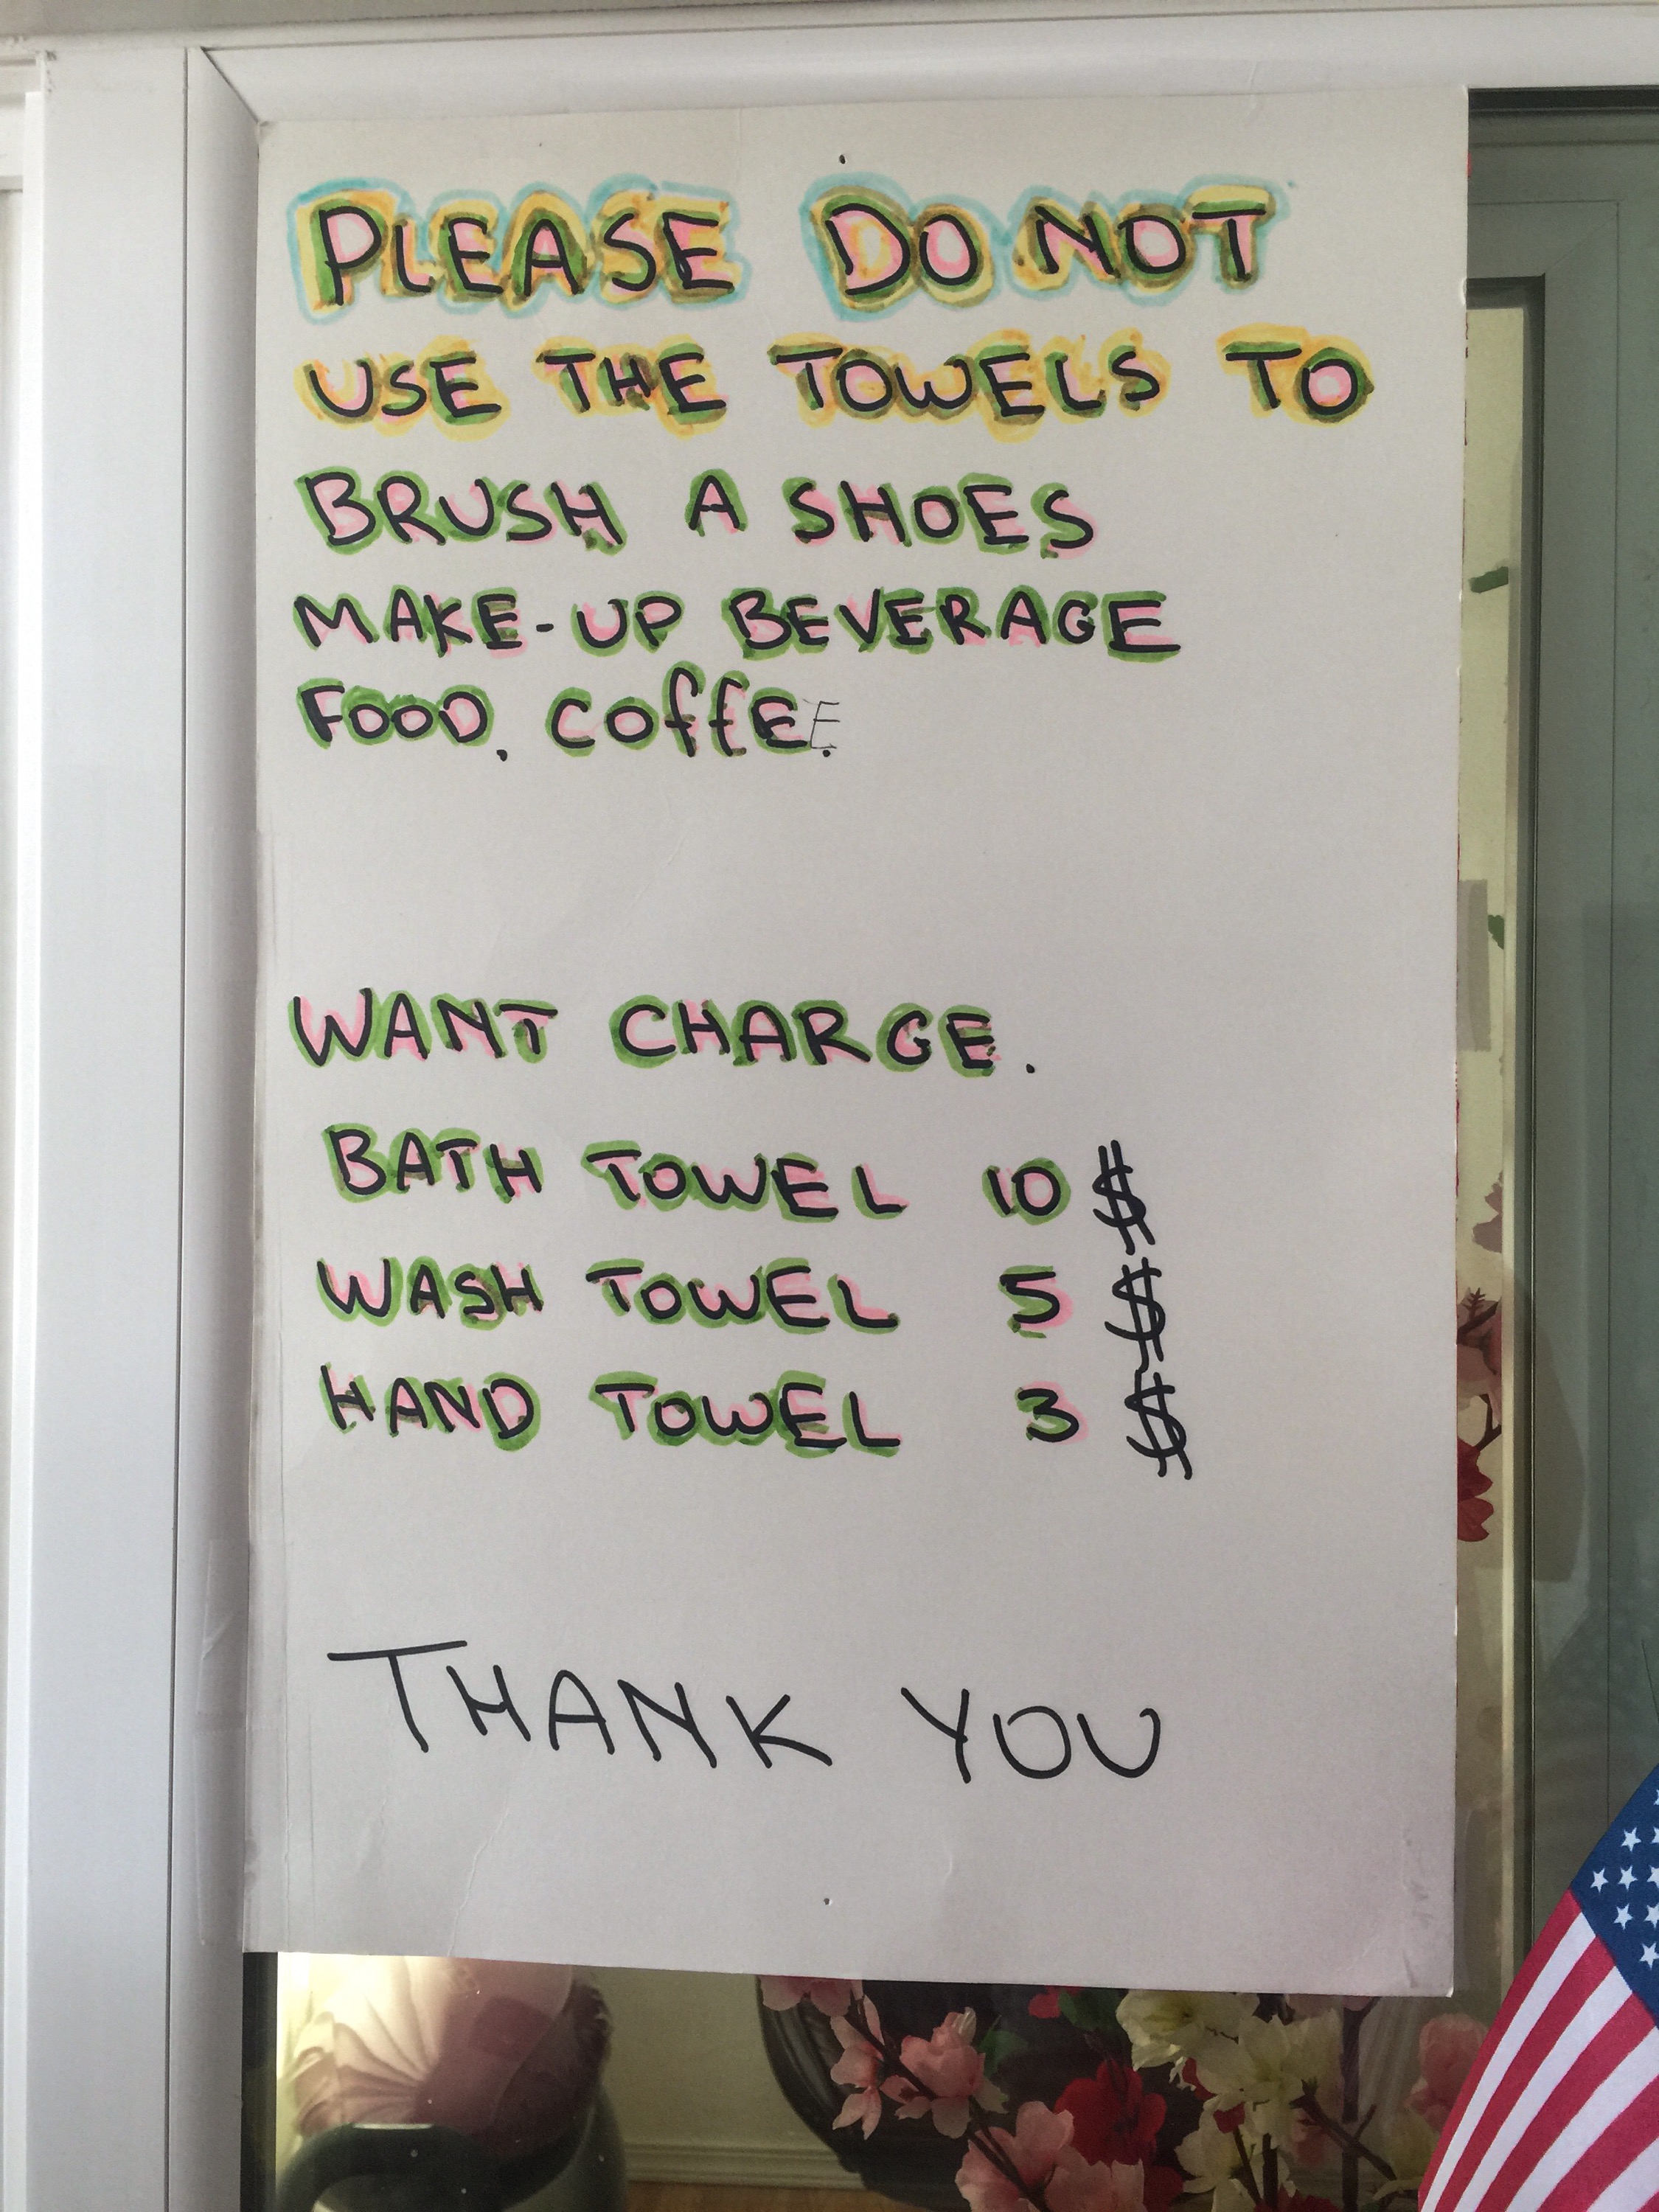 PLEASE DO NOT
USE THE TOWELS TO
BRUSH A SHOES
MAKE-UP BEVERAGE
FOOD. COffEE.
WANT CHARGE.
BATH TOWEL 10 $
WASH TOWEL 5 $
HAND TOWEL 3 $
THANK YOU